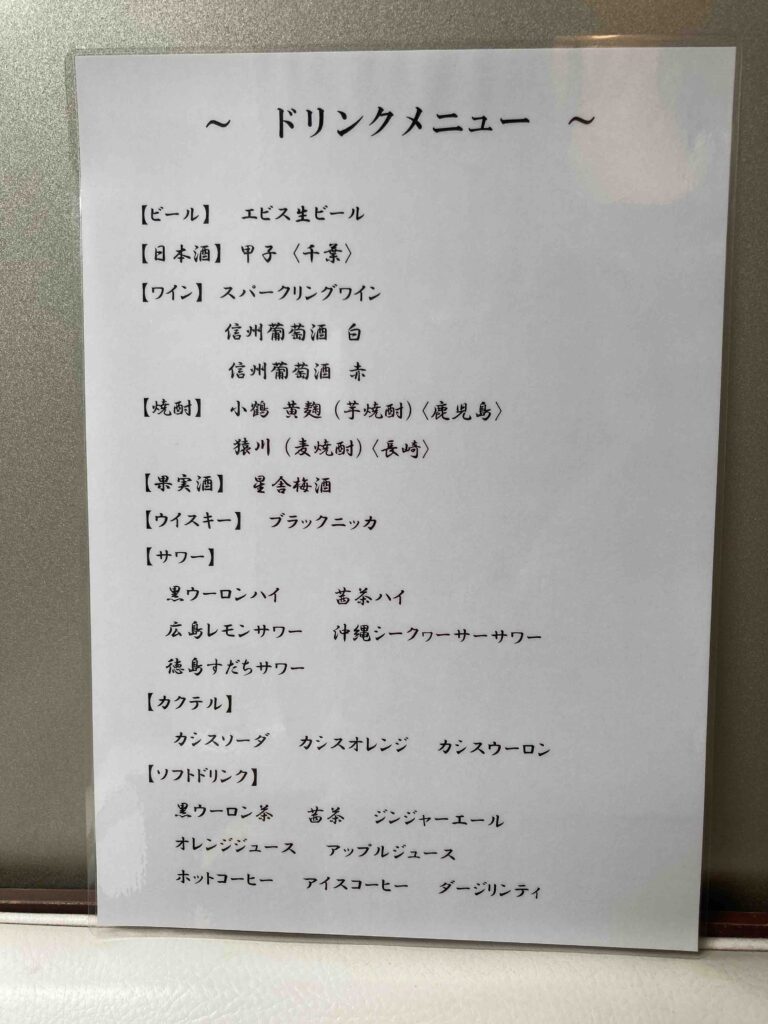 ～　ドリンクメニュー　～
【ビール】　エビス生ビール
【日本酒】　甲子〈千葉〉
【ワイン】　スパークリングワイン
信州葡萄酒　白
信州葡萄酒　赤
【焼酎】　小鶴 黄麹（芋焼酎）〈鹿児島〉
猿川（麦焼酎）〈長崎〉
【果実酒】　星舎梅酒
【ウイスキー】　ブラックニッカ
【サワー】
黒ウーロンハイ　　茜茶ハイ
広島レモンサワー　沖縄シークヮーサーサワー
徳島すだちサワー
【カクテル】
カシスソーダ　カシスオレンジ　カシスウーロン
【ソフトドリンク】
黒ウーロン茶　茜茶　ジンジャーエール
オレンジジュース　アップルジュース
ホットコーヒー　アイスコーヒー　ダージリンティ